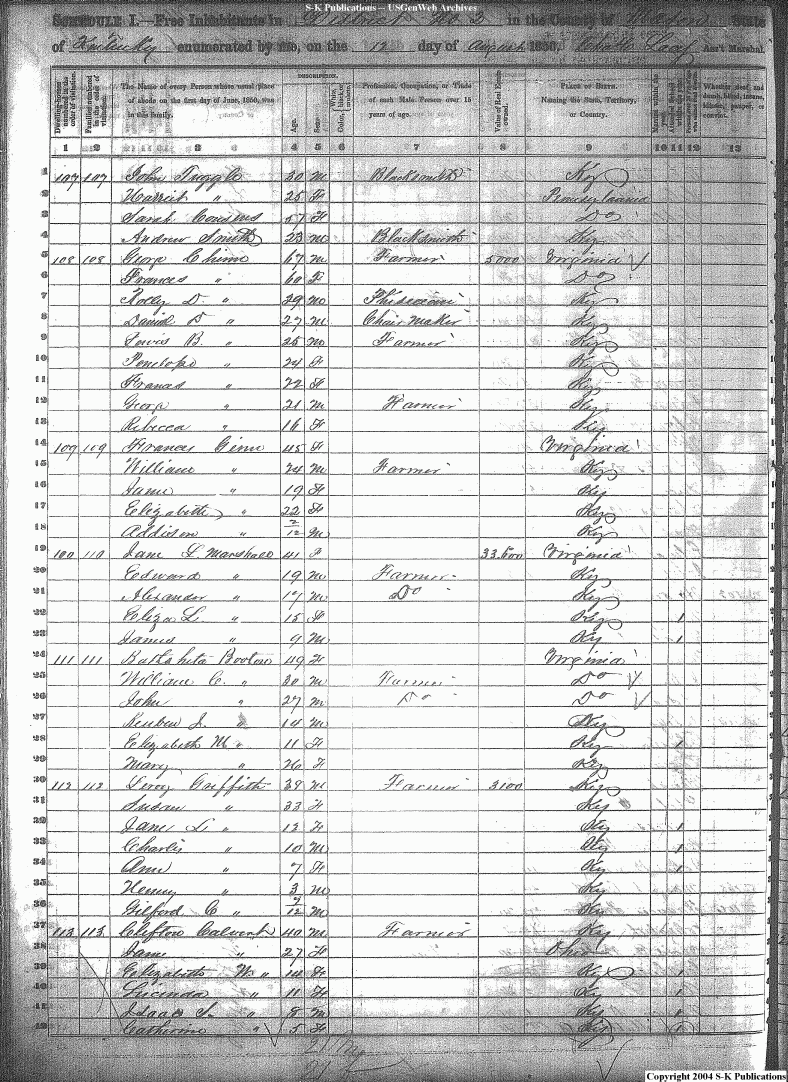 S-K Publications -- USGenWeb Archives
SCHEDULE I.—Free Inhabitants in District No 2 in the County of State
of Kentucky enumerated by me, on the 12 day of August 1850. Ass't Marshal.
DESCRIPTION.
Dwelling-houses numbered in the order of visitation. Families numbered in the order of visitation. The Name of every Person whose usual place of abode on the first day of June, 1850, was in this family. Age. Sex. Color, White, black, or mulatto. Profession, Occupation, or Trade of each Male Person over 15 years of age. Value of Real Estate owned. PLACE OF BIRTH. Naming the State, Territory, or Country. Whether deaf and dumb, blind, insane, idiotic, pauper, or convict.
1 2 3 4 5 6 7 8 9 10 11 12 13
1 107 107 John Tuggle 30 M Blacksmith Ky
2 Harriet " 25 F Pennsylvania
3 Sarah Cousins 57 F Do
4 Andrew Smith 23 M Blacksmith Ky
5 108 108 George 67 M Farmer 5000 Virginia
6 Frances " 60 F Do
7 D. " 29 M Ky
8 Daniel " 27 M Chair Maker Ky
9 Lewis B. " 25 M Farmer Ky
10 Penelope " 24 F Ky
11 Frances " 22 F Ky
12 George " 21 M Farmer Ky
13 Rebecca " 16 F Ky
14 109 109 Frances Ginn 45 F Virginia
15 William " 24 M Farmer Ky
16 Jane " 19 F Ky
17 Elizabeth " 22 F Ky
18 Addison " 2/12 M Ky
19 100 110 Jane L. Marshall 41 F 33.600 Virginia
20 Edward " 19 M Farmer Ky
21 Alexander " 17 M Do Ky
22 Eliza L. " 15 F Ky 1
23 James " 9 M Ky 1
24 111 111 Booton 49 F Virginia
25 William C. " 30 M Farmer Do
26 John " 27 M Do Do
27 Reuben J. " 14 M Ky
28 Elizabeth M " 11 F Ky 1
29 Mary " 26 F Ky
30 112 112 Leroy Griffith 39 M Farmer 3100 Ky
31 Susan " 33 F Ky
32 Jane L " 12 F Ky 1
33 Charles " 10 M Ky 1
34 Ann " 7 F Ky 1
35 Henny " 3 M Ky
36 Gilford C " M Ky
37 113 113 Clefton Calvert 40 M Farmer Ky
38 Jane " 27 F Ohio
39 Elizabeth W " 14 F Ky 1
40 Lucinda " 11 F Ky 1
41 Isaac S. " 8 M Ky 1
42 Catherine " 5 F Ky 1
Copyright 2004 S-K Publications